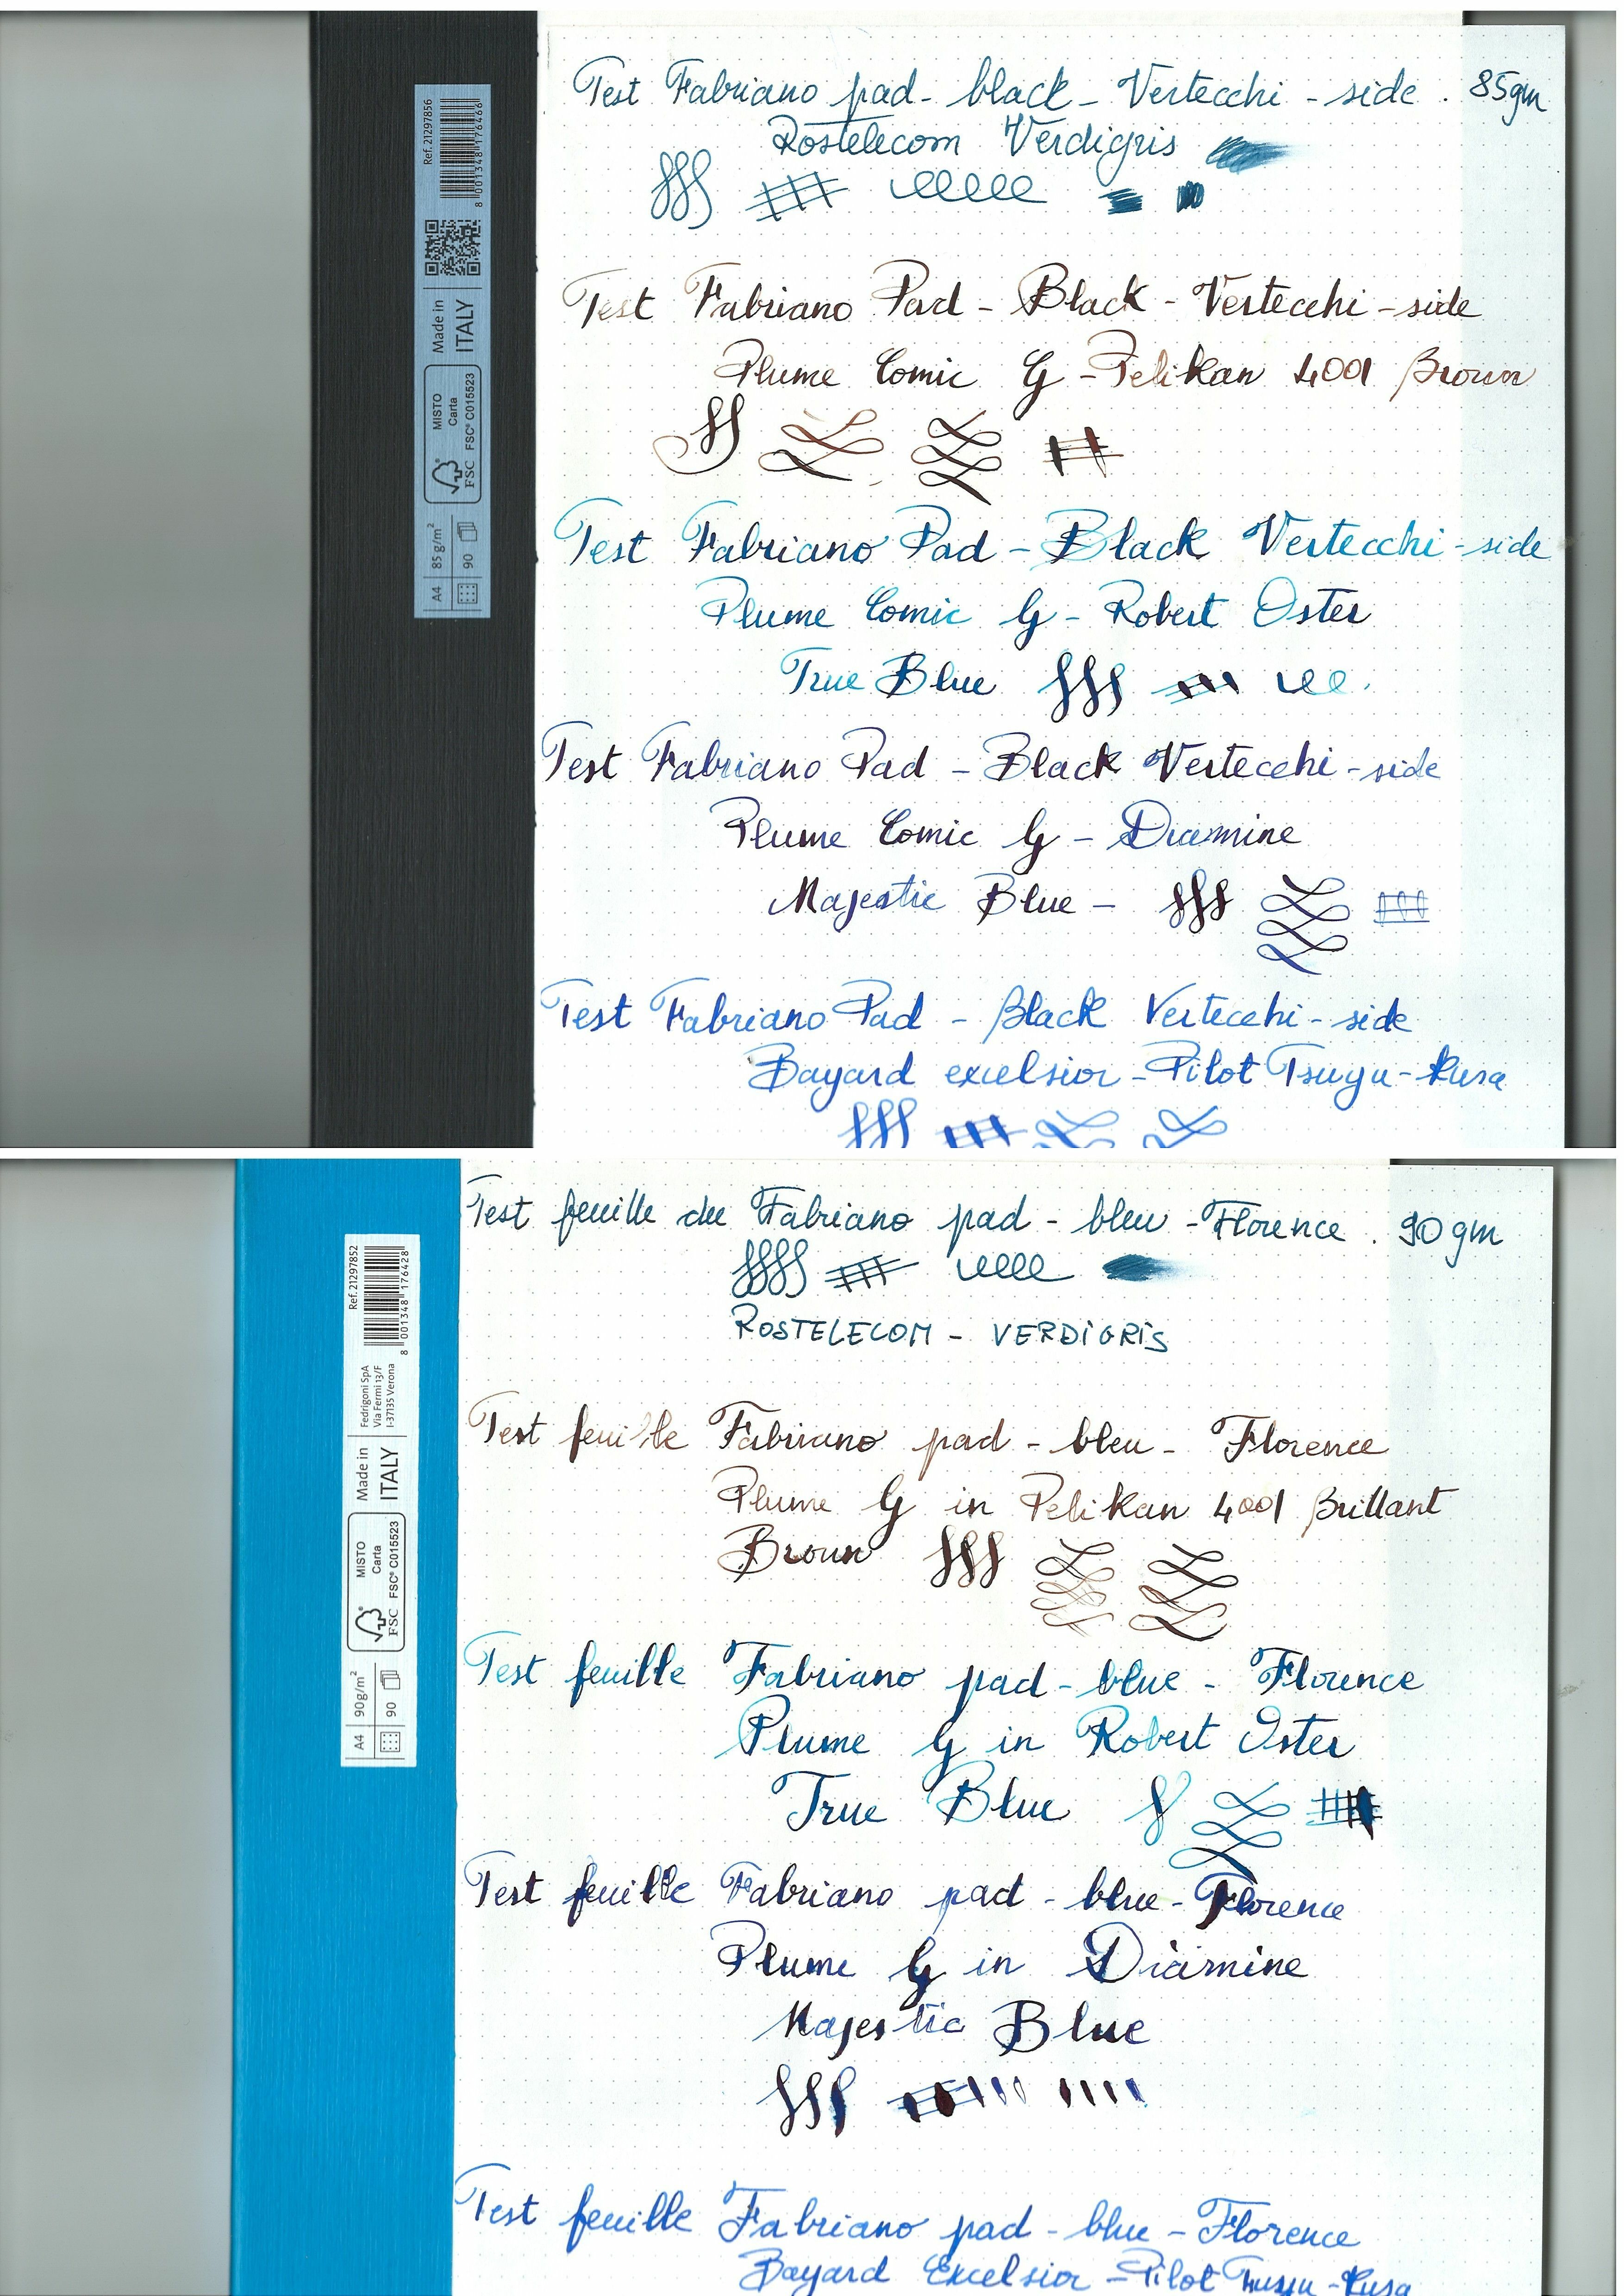 Test Fabriano pad - black - Vertecchi - side . 85gm
Rostelecom Verdigris
Test Fabriano Pad - Black - Vertecchi - side
Plume Comic G - Pelikan 4001 Brown
Test Fabriano Pad - Black Vertecchi - side
Plume Comic G - Robert Oster
True Blue
Test Fabriano Pad - Black Vertecchi - side
Plume Comic G - Diamine
Majestic Blue -
Test Fabriano Pad - Black Vertecchi - side
Bayard excelsior - Pilot Tsuyu - kusa
Ref. 21297856
8 001348 176466
Made in
ITALY
MISTO
Carta
FSC® C015523
FSC
A4 85 g/m²
90
Test feuille du Fabriano pad - bleu - Florence . 90 gm
ROSTELECOM - VERDIGRIS
Test feuille Fabriano pad - bleu - Florence
Plume G in Pelikan 4001 Brillant
Broun
Test feuille Fabriano pad - blue - Florence
Plume G in Robert Oster
True Blue
Test feuille Fabriano pad - blue - Florence
Plume G in Diamine
Majestic Blue
Test feuille Fabriano pad - blue - Florence
Bayard Excelsior - Pilot Tsuyu - Kusa
Ref. 21297852
8 001348 176428
Fedrigoni SpA
Via Fermi 13/F
I-37135 Verona
Made in
ITALY
MISTO
Carta
FSC® C015523
FSC
A4 90g/m²
90